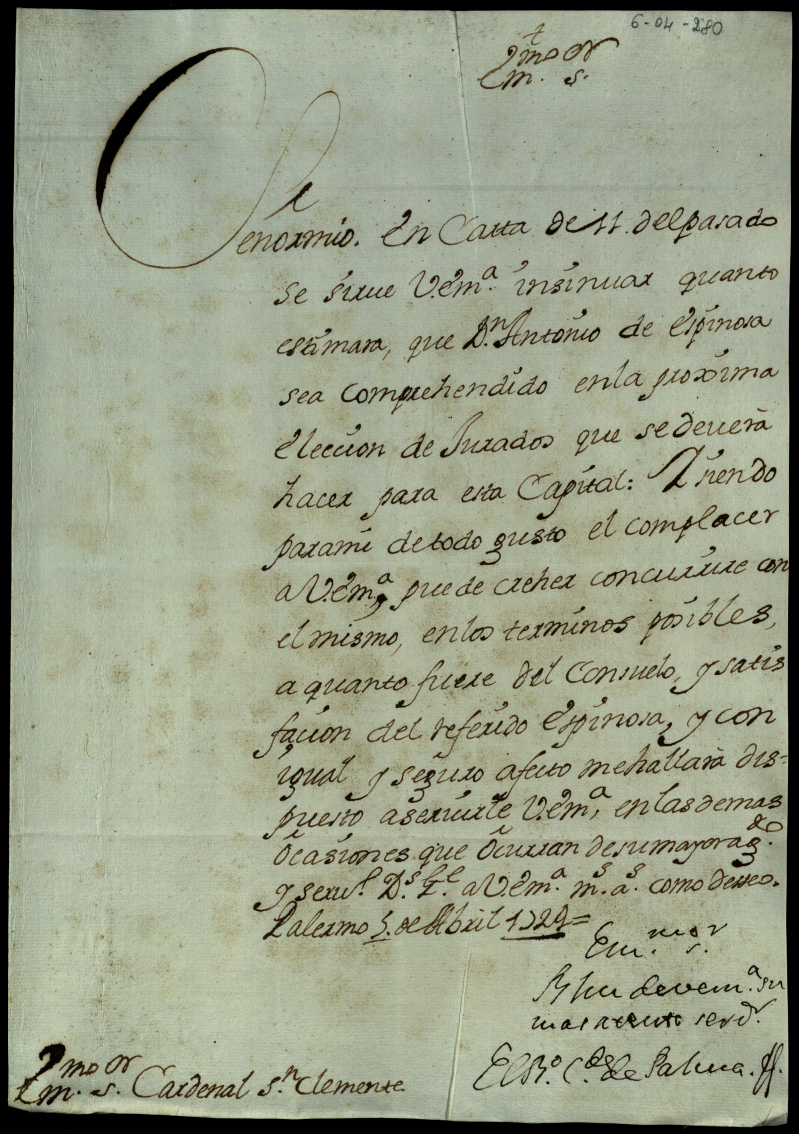 6-04-280
†
Em.mo S.or
Señor mio. En Carta de 11. del pasado
se sirve V.Em.ª insinuar quanto
estimara, que D.n Antonio de Espinosa
sea comprehendido en la proxîma
eleccion de Jurados que se deverà
hacer para esta Capital: Y siendo
para mi de todo gusto el complacer
a V.Em.ª, puede creher concurrirè con
el mismo, en los terminos posibles,
a quanto fuere del Consuelo, y satis
facion del referido Espinosa, y con
igual y seguro afecto me hallarà dis=
puesto a servirle V.Em.ª, en las demas
Ocasiones que Ocurran de su mayor ag.do
y serv.º D.s g.e a V.Em.ª m.s a.s como desseo.
Palermo 5. de Abril 1724=
Em.mo S.or
B l m de V em.ª su
mas atento serv.dr
El C.de de Palma.
Em.mo S.or Cardenal S.n Clemente